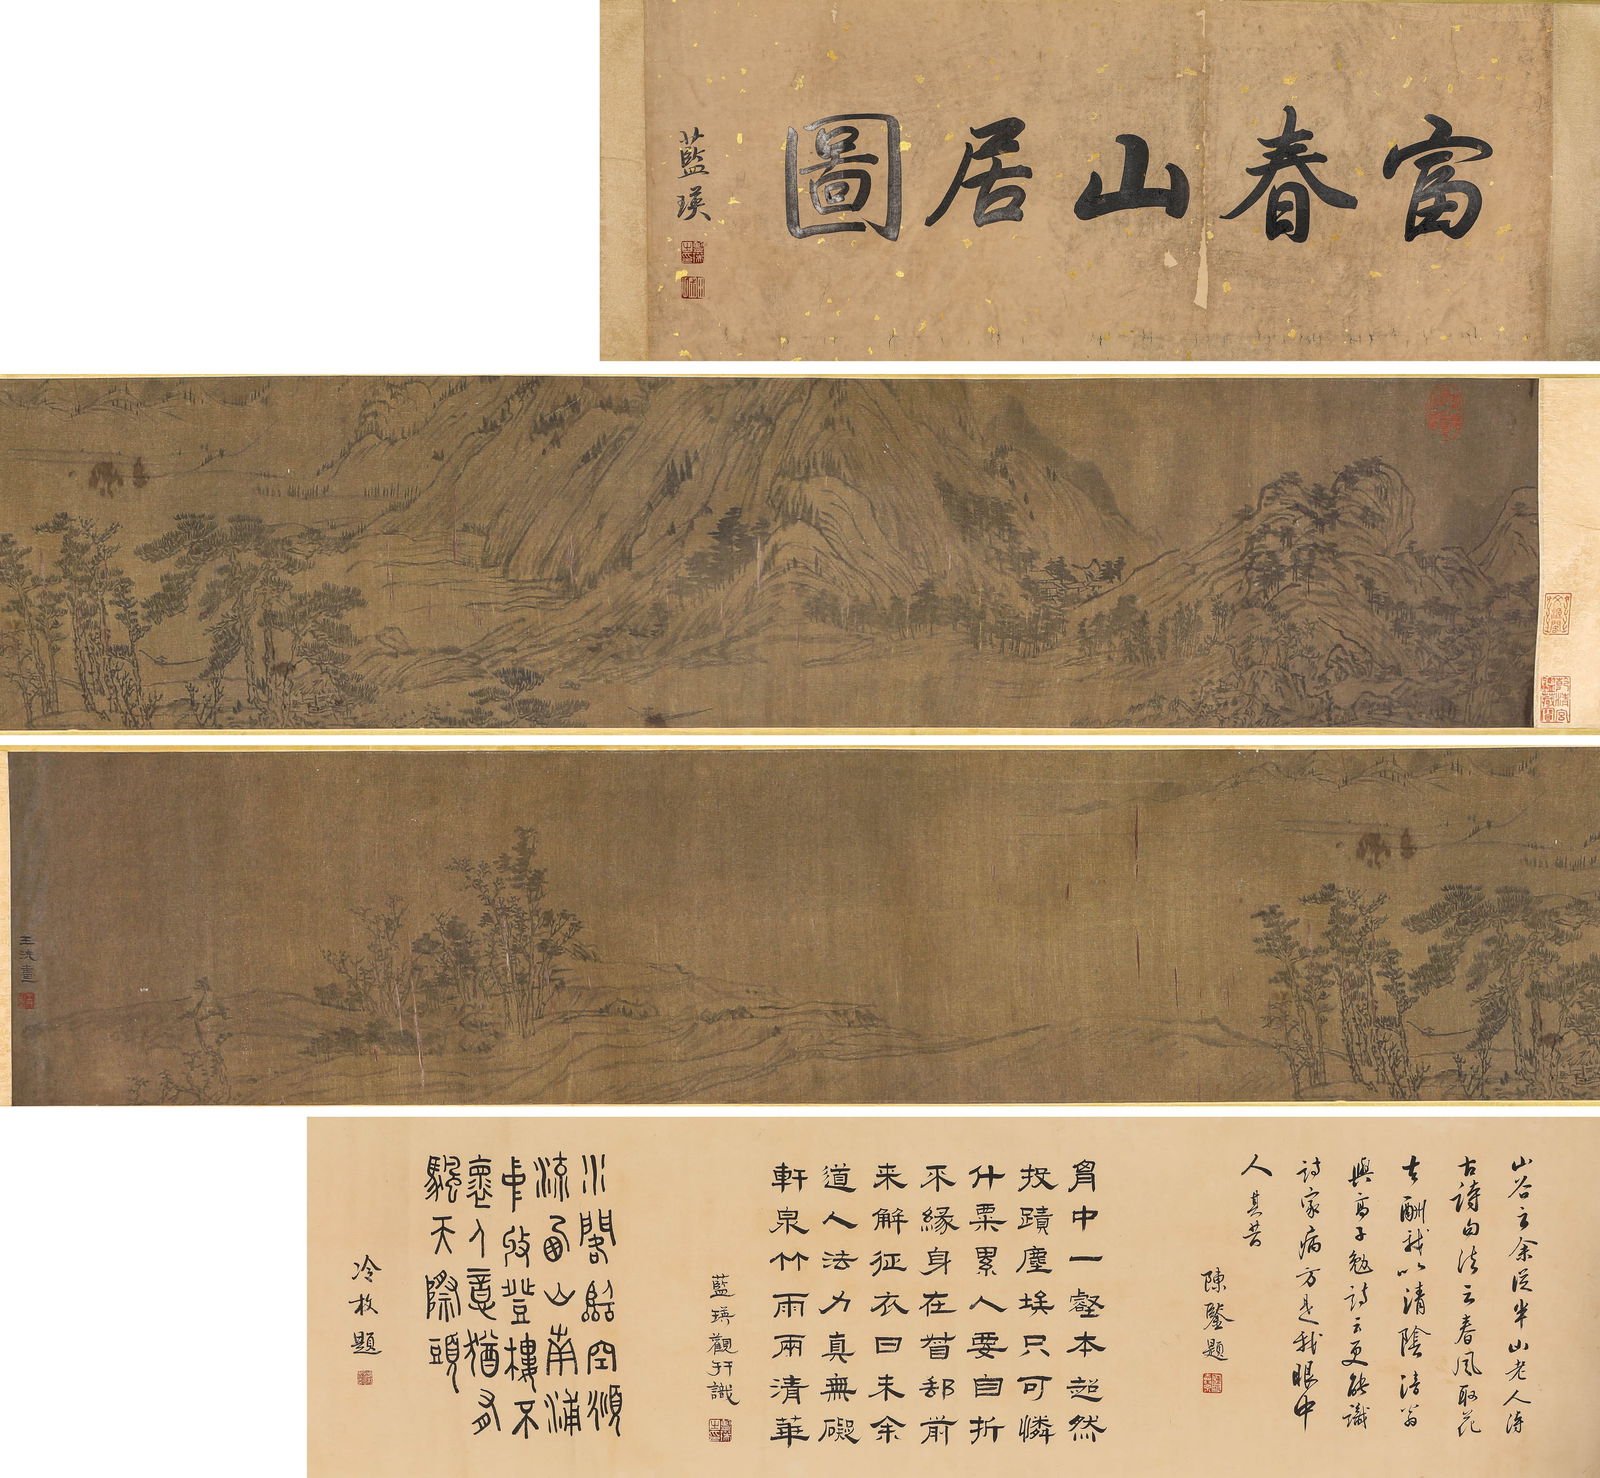 富春山居圖
藍瑛
乾清宮鑒藏寶
王洗畫
山谷云余從半山老人得
古詩句法云春風取花
去酬我以清陰涪翁
與高子勉詩云更能識
詩家病方是我眼中
人 其昔
陳鑒題
胷中一壑本超然
投蹟塵埃只可憐
什粟累人要自折
不緣身在督郵前
来解征衣日未余
道人法力真無礙
軒泉竹雨兩清華
藍瑛觀并識
山南浦
登樓不
人意猶
天際頭
冷枚題